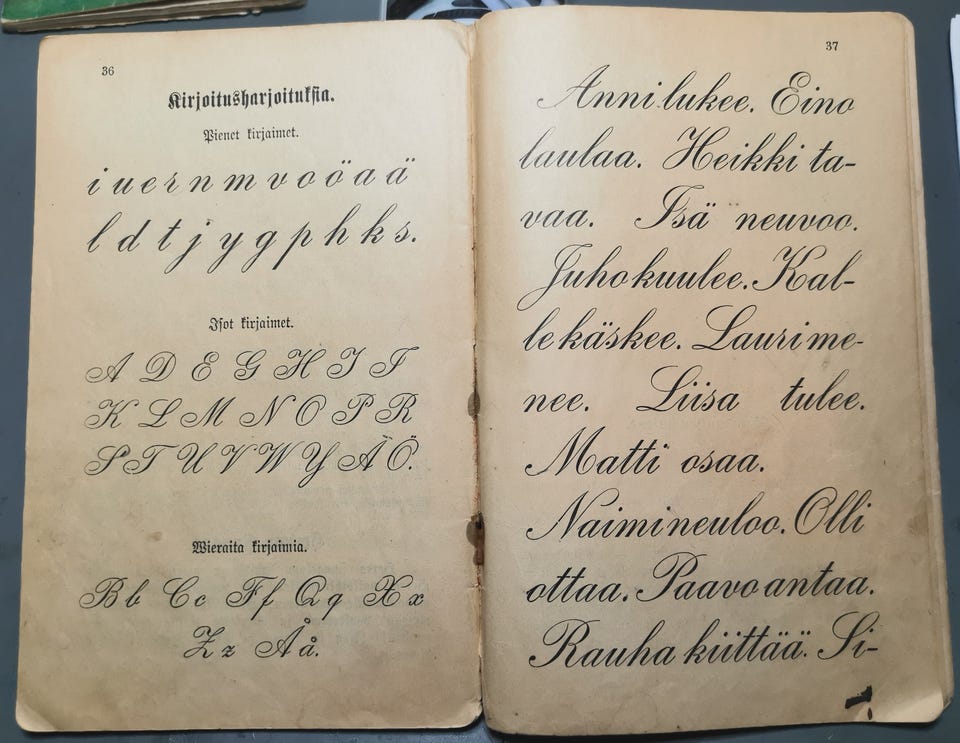 36
Kirjoitusharjoituksia.
Pienet kirjaimet.
i u e r n m v o ö a ä
l d t j y g p h k s.
Isot kirjaimet.
A D E G H I J
K L M N O P R
S T U V W Y Ä Ö.
Wieraita kirjaimia.
Bb Cc Ff Qq Xx
Zz Åå.
37
Anni lukee. Eino
laulaa. Heikki ta-
vaa. Isä neuvoo.
Juho kuulee. Kal-
le käskee. Lauri me-
nee. Liisa tulee.
Matti osaa.
Naimi neuloo. Olli
ottaa. Paavo antaa.
Rauha kiittää. Si-